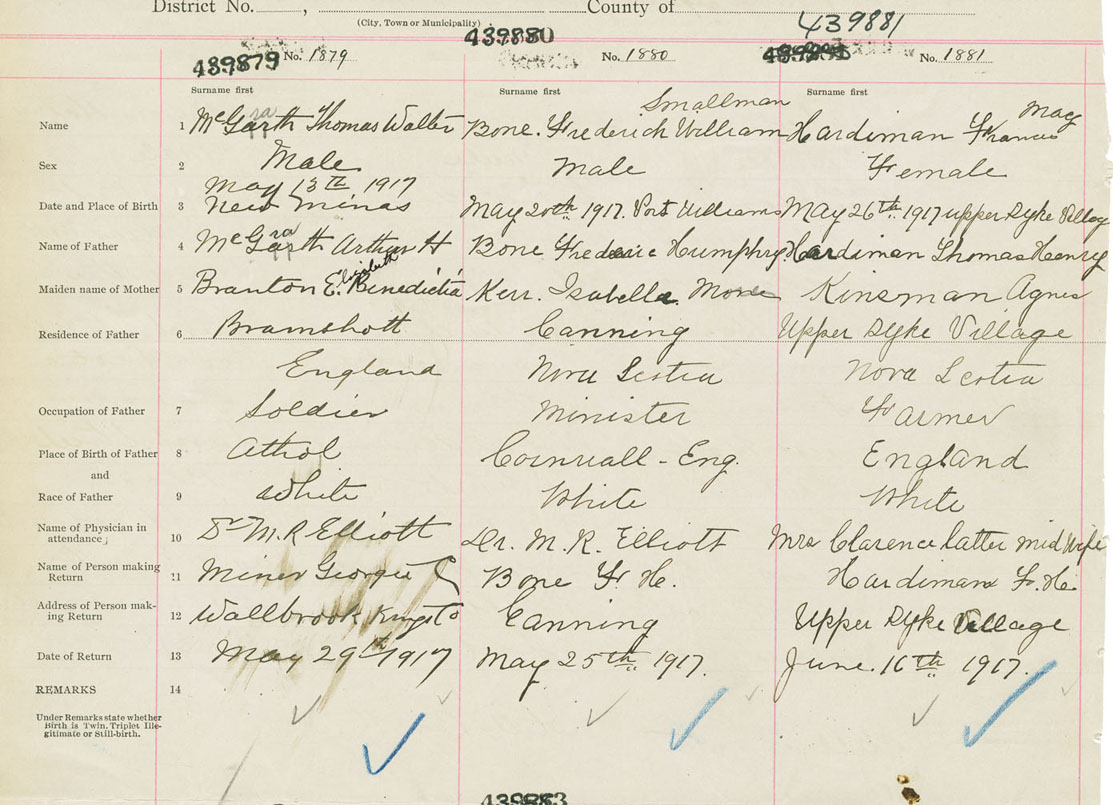 District No. , County of
(City, Town or Municipality)
439881
439880
439879 No. 1879 No. 1880 No. 1881
Surname first Surname first Surname first
Name 1 McGarth ra Thomas Walter Bone. Frederich William Smallman Hardiman Francis May
Sex 2 Male Male Female
May 13th 1917
Date and Place of Birth 3 New Minas May 20th 1917. Port Williams May 26th 1917 Upper Dyke Village
Name of Father 4 McGarth ra Arthur H Bone Frederic Humphry. Hardiman Thomas Henry
Maiden name of Mother 5 Branton E. Elizabeth Benedictia Kerr. Isabella Kinsman Agnes
Residence of Father 6 Bramshott Canning Upper Dyke Village
England Nova Scotia Nova Scotia
Occupation of Father 7 Soldier Minister Farmer
Place of Birth of Father 8 Athol Cornwall - Eng. England
and
Race of Father 9 White White White
Name of Physician in
attendance; 10 Dr M. R Elliott Dr. M. R. Elliott Mrs Clarence Latter Mid Wife
Name of Person making
Return 11 Miner Georgie C Bone F. H. Hardiman F. H.
Address of Person mak-
ing Return 12 Wallbrook Kings Co Canning Upper Dyke Village
Date of Return 13 May 29th 1917 May 25th 1917. June. 16th 1917.
REMARKS 14
Under Remarks state whether
Birth is Twin, Triplet Ille-
gitimate or Still-birth.
439883